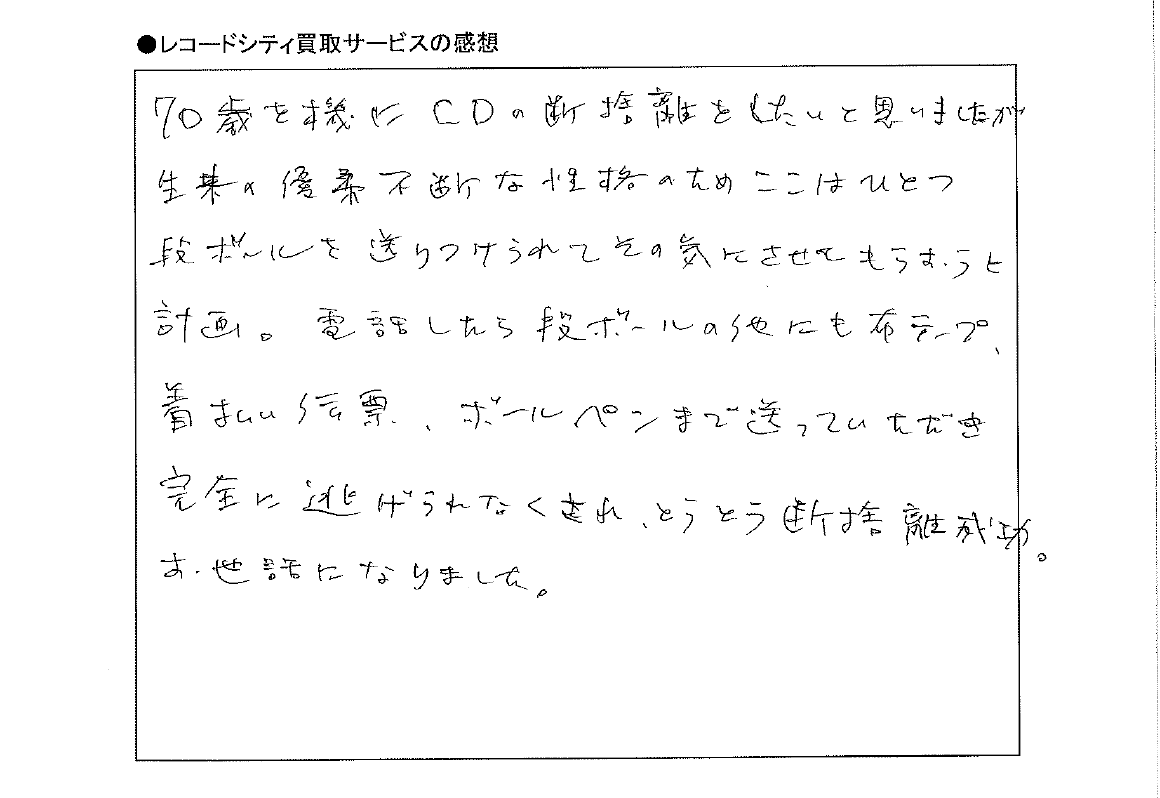 ●レコードシティ買取サービスの感想
70歳を機に CDの断捨離をしたいと思いましたが
生来の優柔不断な性格のため ここはひとつ
段ボールを送りつけられてその気にさせてもらおうと
計画。電話したら段ボールの他にも布テープ、
着払い伝票、ボールペンまで送っていただき
完全に逃げられなくされ、とうとう断捨離成功。
お世話になりました。